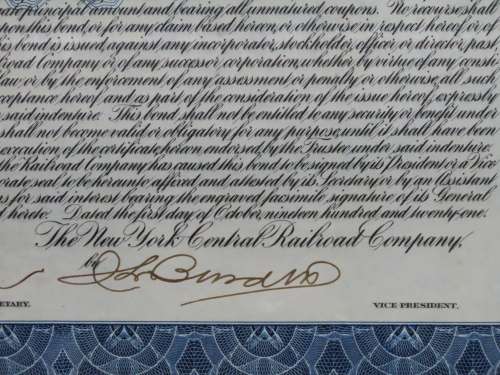 principal amount and bearing all unmatured coupons. No recourse shall
upon this bond, or for any claim based hereon, or otherwise in respect hereof, or of
is bond is issued, against any incorporator, stockholder, officer or director, past
road Company or of any successor, corporation, whether by virtue of any const
law or by the enforcement of any assessment or penalty or otherwise, all such
cceptance hereof and as part of the consideration of the issue hereof, expressly
said indenture. This bond shall not be entitled to any security or benefit under
shall not become valid or obligatory for any purpose, until it shall have been
execution of the certificate, hereon endorsed, by the Trustee under said indenture.
the Railroad Company has caused this bond to be signed by its President or a Vice
orate seal to be hereunto affixed and attested by its Secretary or by an Assistant
s for said interest bearing the engraved facsimile signature of its General
d hereto. Dated the first day of October, nineteen hundred and twenty-one.
The New York Central Railroad Company,
by
ETARY.
VICE PRESIDENT.